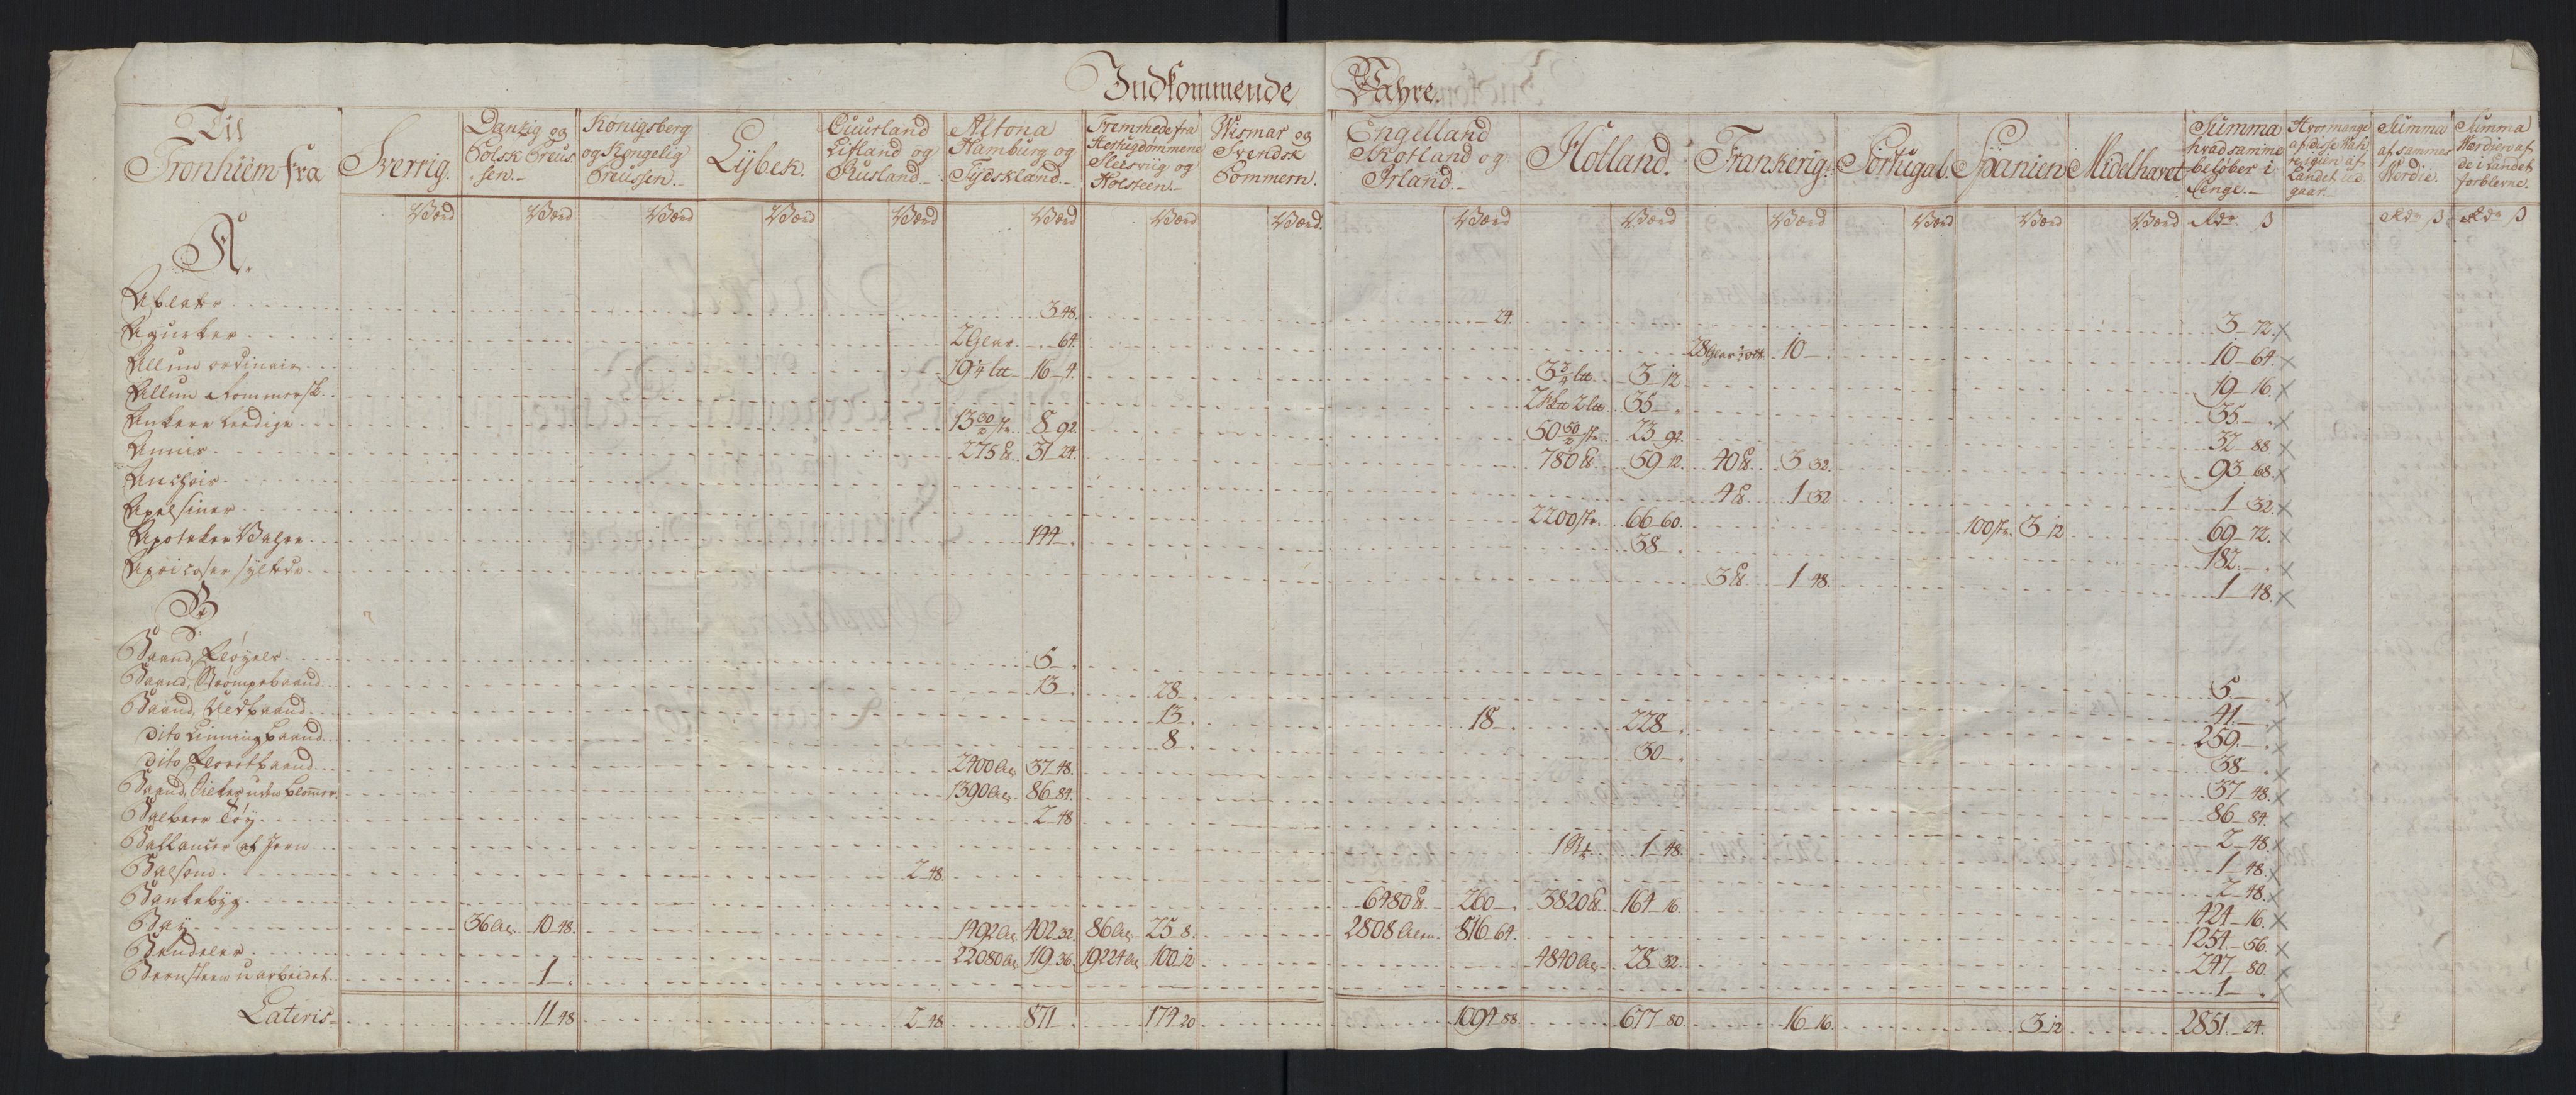 Indkommende Wahre.
Til Tronhiem fra | Sverrig. | Dantzig og Polsk Preussen. | Königsberg og Kongelig Preussen. | Lybek. | Cuurland Lifland og Rusland | Altona Hamburg og Tydskland. | Fremmede fra Hertugdommene Slesviig og Holsteen. | Wismar og Svendsk Pommern. | Engelland Skotland og Irland. | Holland. | Frankerig. | Portugal. | Spanien | Midelhavet | Summa hvad samme beløber i Penge. | Hvor mange af disse Wahre igien af Landet udgaar. | Summa af sammes Værdie. | Summa Værdien af de i Landet forblevne.
Værd Værd Værd Værd Værd Værd Værd Værd. Værd Værd Værd Værd Værd Værd Rdr ß Rdr ß Rdr ß
A.
Ablater 3 48. 24. 3 72.
Agurker 2 Glas 64. 28 Glas 10 10 64.
Allun ordinair 19 1/4 ltt 16 4. 3 3/4 ltt 3 12 19 16.
Allun Rommersk. 2 ltt 35 35
Ankere leedige 13 30/ st. 8 92. 50 50/ st. 23 92. 32 88.
Annis 275 ℔ 31 24. 780 ℔ 59 12. 40 ℔ 3 32. 93 68.
Anchois 4 ℔ 1 32. 1 32.
Apelsiner 2200 st. 66 60. 100 st. 3 12 69 72.
Apoteker Wahre 144 38 182
Apricoser syltede 3 ℔ 1 48. 1 48.
B.
Baand, Fløyels 5 5
Baand, Strømpebaand 13 28 41
Baand, Uldbaand 13 18 228 259
dito Linningbaand 8 30 38
dito Floretbaand 2400 Al. 37 48. 37 48.
Baand, uden blommer. 1390 Al. 86 84. 86 84.
Balberer Tøy 2 48 2 48.
Ballancer af Jern 1 St. 1 48. 1 48.
Balsom 2 48 2 48.
Bankebyg 6480 ℔ 260 3820 ℔ 164 16. 424 16.
Bay 36 Al. 10 48. 1492 Al. 402 32. 86 Al. 25 8. 2808 Alen. 816 64. 1254 56.
Bendeler 22080 Al. 119 36. 19224 Al. 100 12 4840 Al. 28 32. 247 80.
Bernsteen uarbeidet 1 1
Lateris 11 48 2 48 871 174 20 1094 88. 677 80. 16 16. 3 12 2851 24.